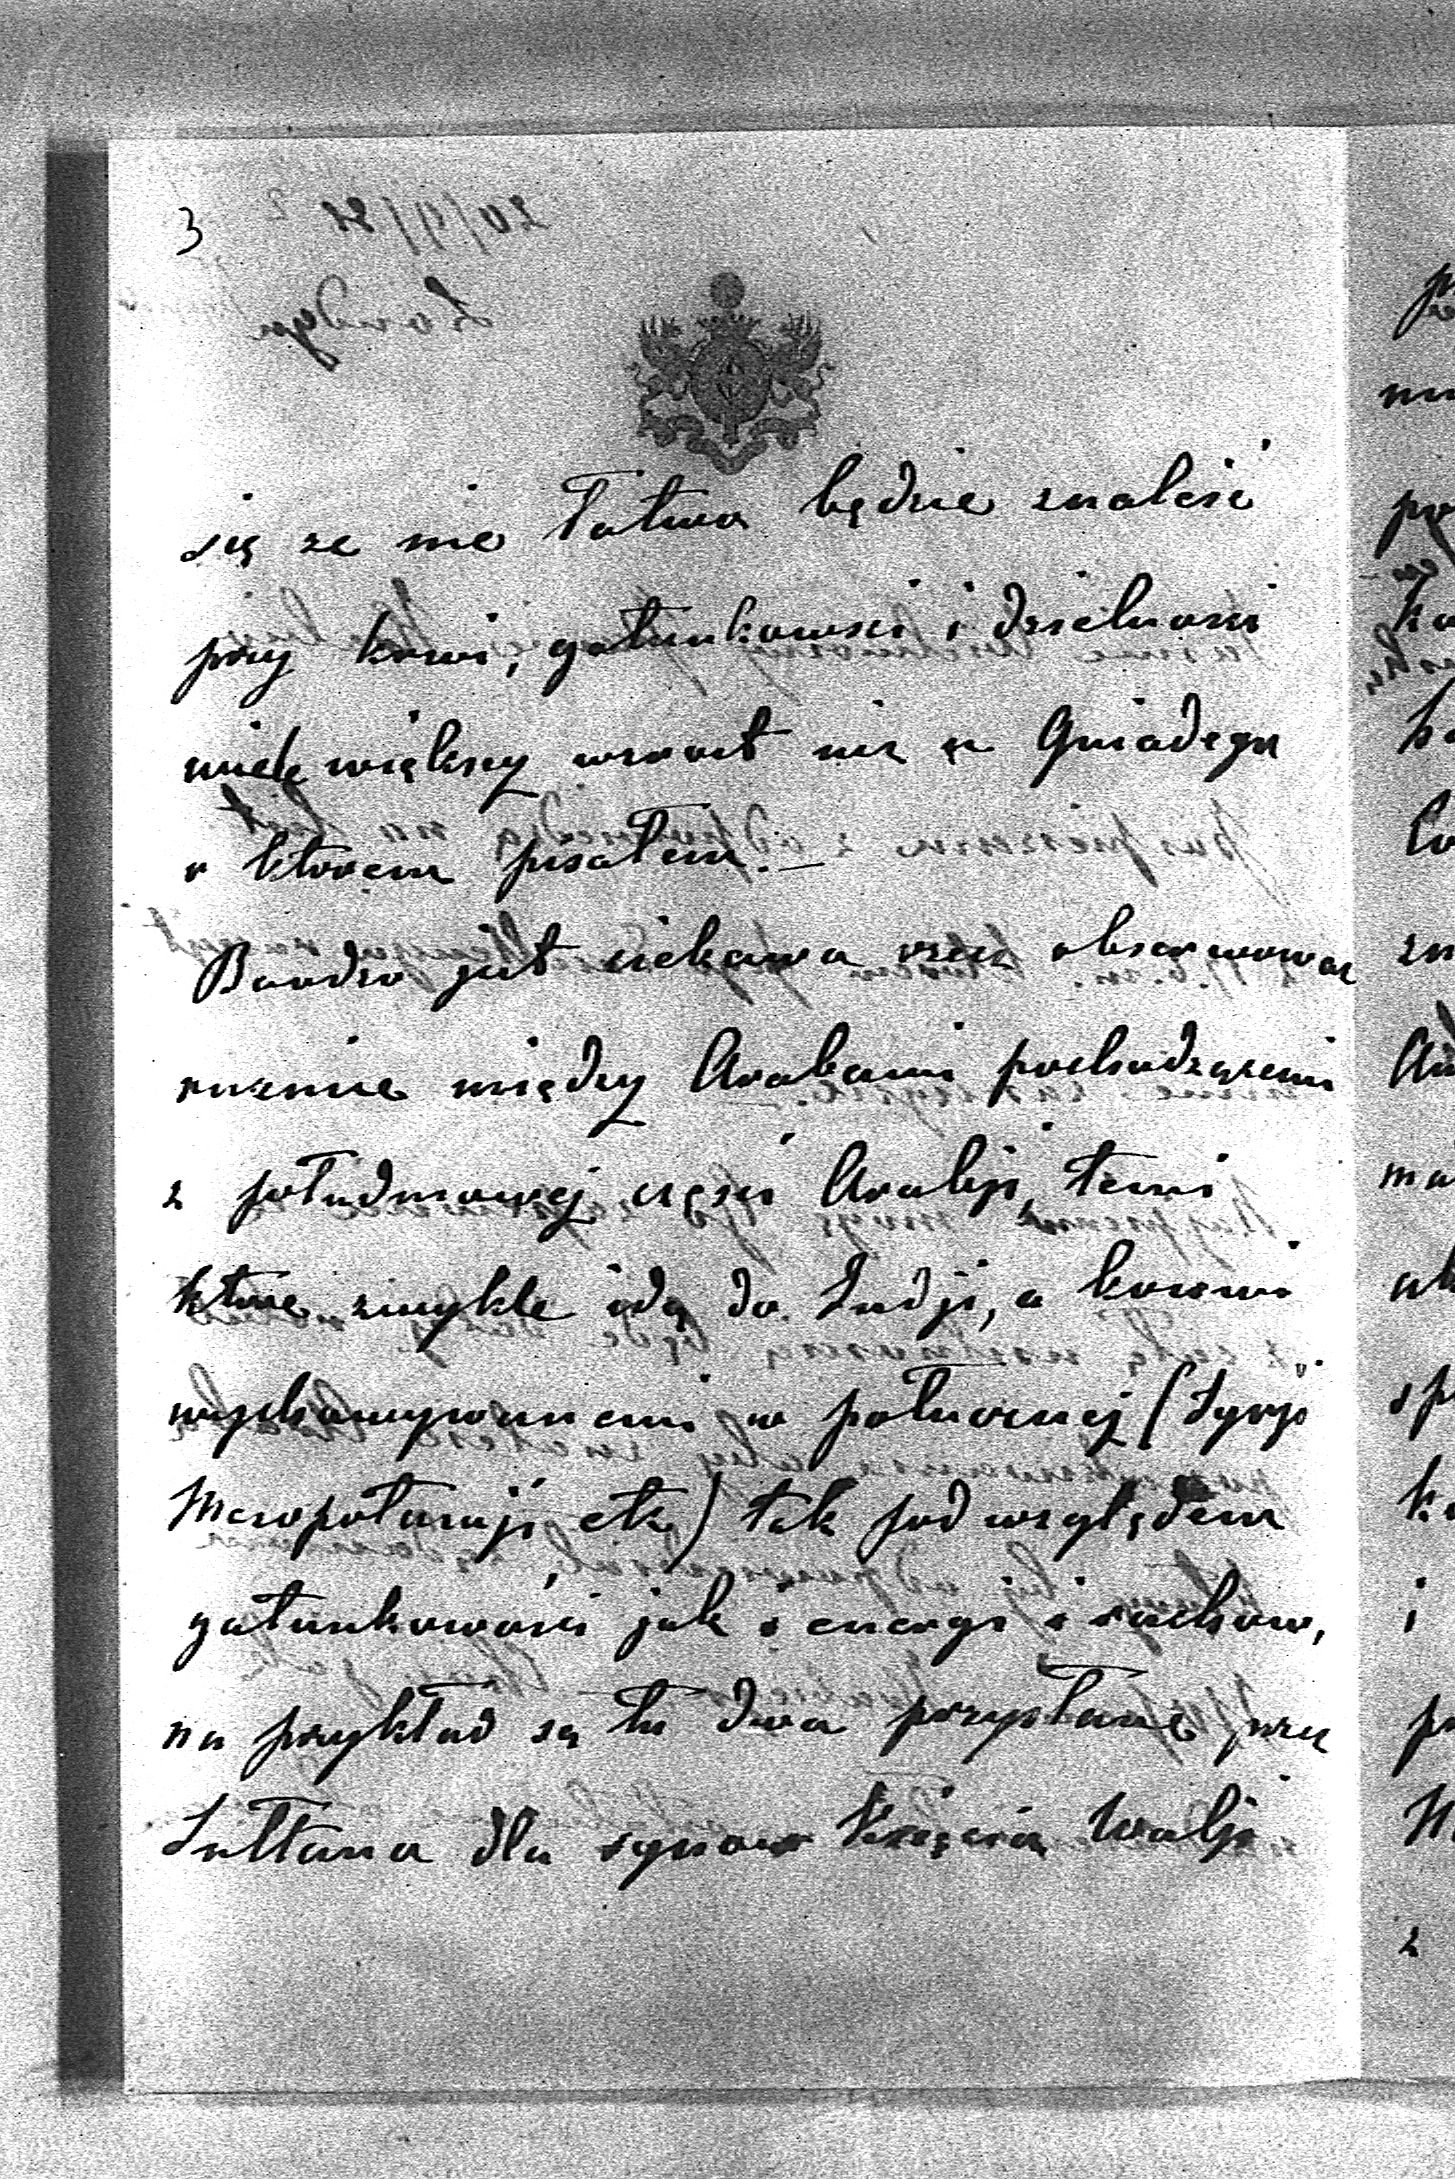 3
się ze nie łatwa będzie znaleść
przy krwi, gatunkowsci i dzielnosci
większy wzrost niz u Gniadego
o ktorem pisałem. —
Bardzo jest ciekawa rzecz obserwowac
roznice między Arabami pochodzącemi
z południowej częsci Arabji, temi
które zwykle idą do Indji, a konmi
wychowywanemi w połnocnej (Syryi
Mesopotamji, etc) tak pod względem
gatunkowości jak i energi i ruchow,
na przykład są tu dwa przysłane przez
Sułtana dla synow Księcia Walji